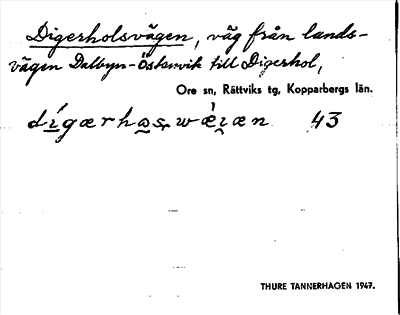 Digerholsvägen, väg från lands-
vägen Dalbyn-Östanvik till Digerhol,
Ore sn, Rättviks tg, Kopparbergs län.
43
THURE TANNERHAGEN 1947.